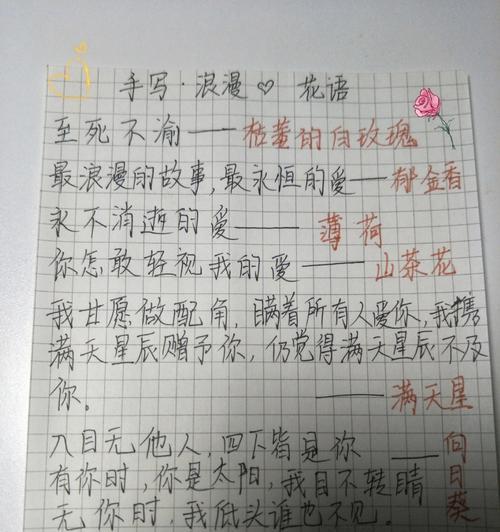 手写·浪漫♡ 花语
至死不渝——枯萎的白玫瑰
最浪漫的故事,最永恒的爱——郁金香
永不消逝的爱——薄荷
你怎敢轻视我的爱——山茶花
我甘愿做配角,瞒着所有人爱你,我携
满天星辰赠予你,仍觉得满天星辰不及
你。——满天星
入目无他人,四下皆是你——向日葵
有你时,你是太阳,我目不转睛
无你时,我低头谁也不见。